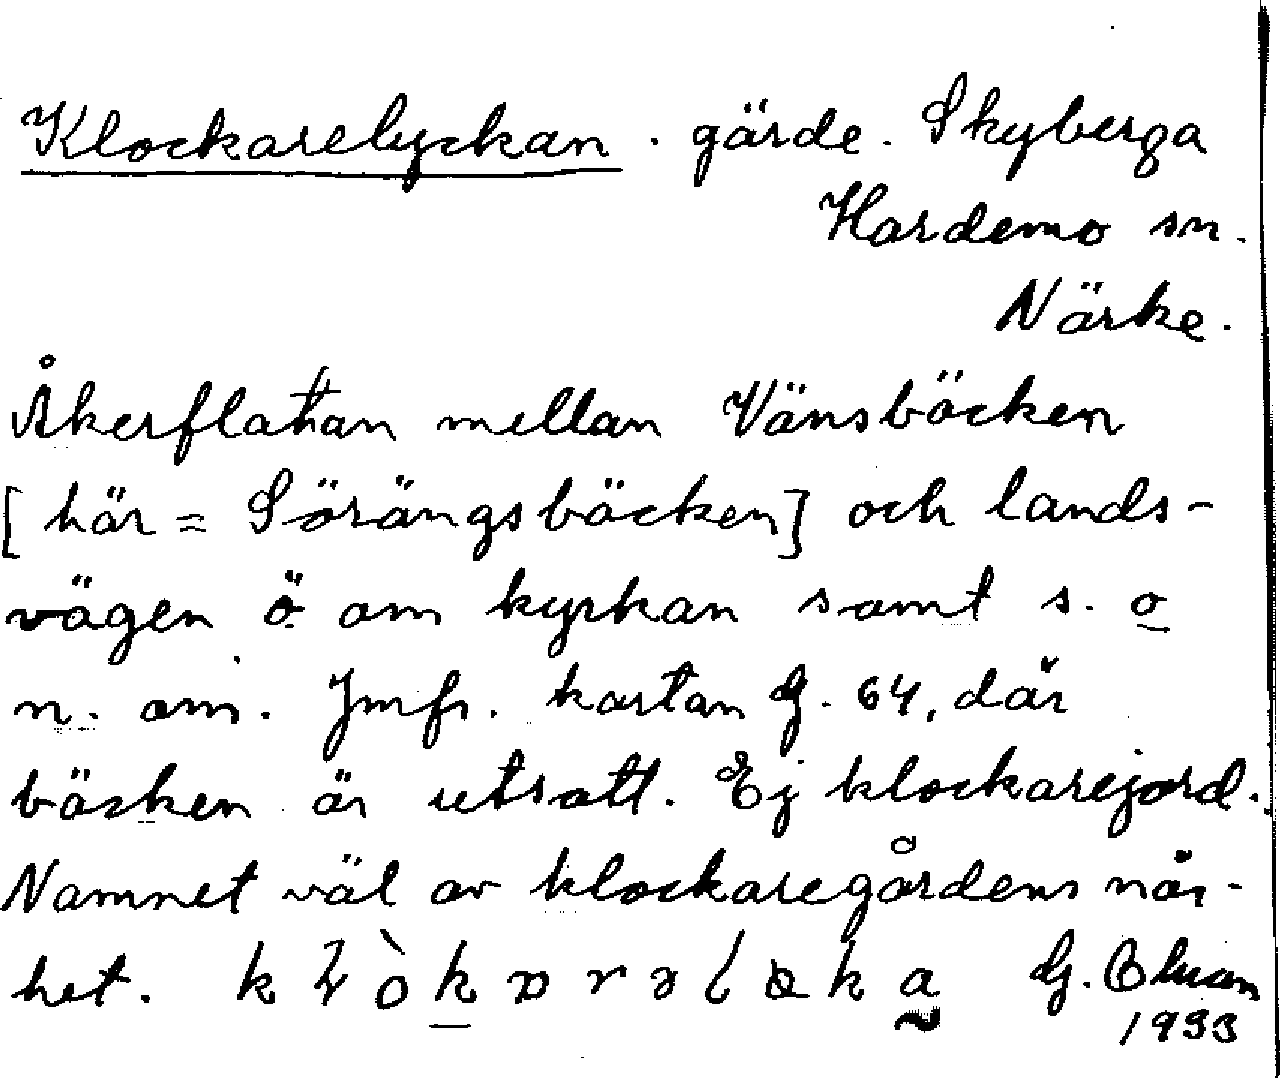 Klockarelyckan . gärde. Skyberga
Hardemo sn.
Närke.
Åkerflatan mellan Vänsbäcken
[här = Sörängsbäcken] och lands-
vägen ö om kyrkan samt s. o
n. om. Jmfr. kartan G. 64, där
bäcken är utsatt. Ej klockarejord.
Namnet väl av klockaregårdens när-
het. G.
1933